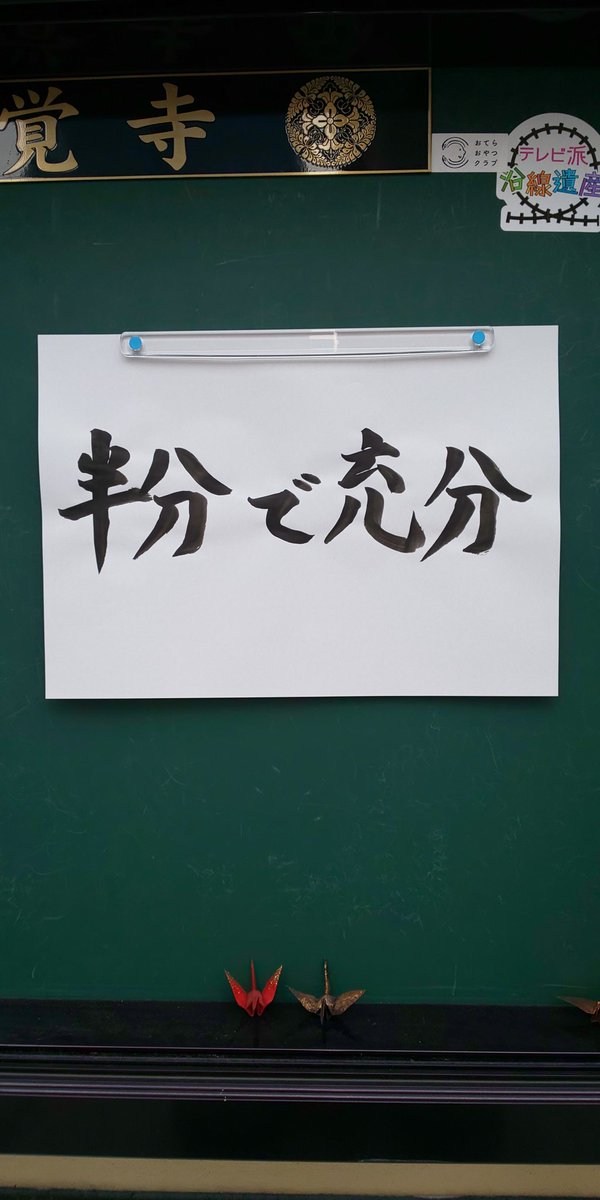 覚寺
おてら
おやつ
クラブ
テレビ派
沿線遺産
半分で充分